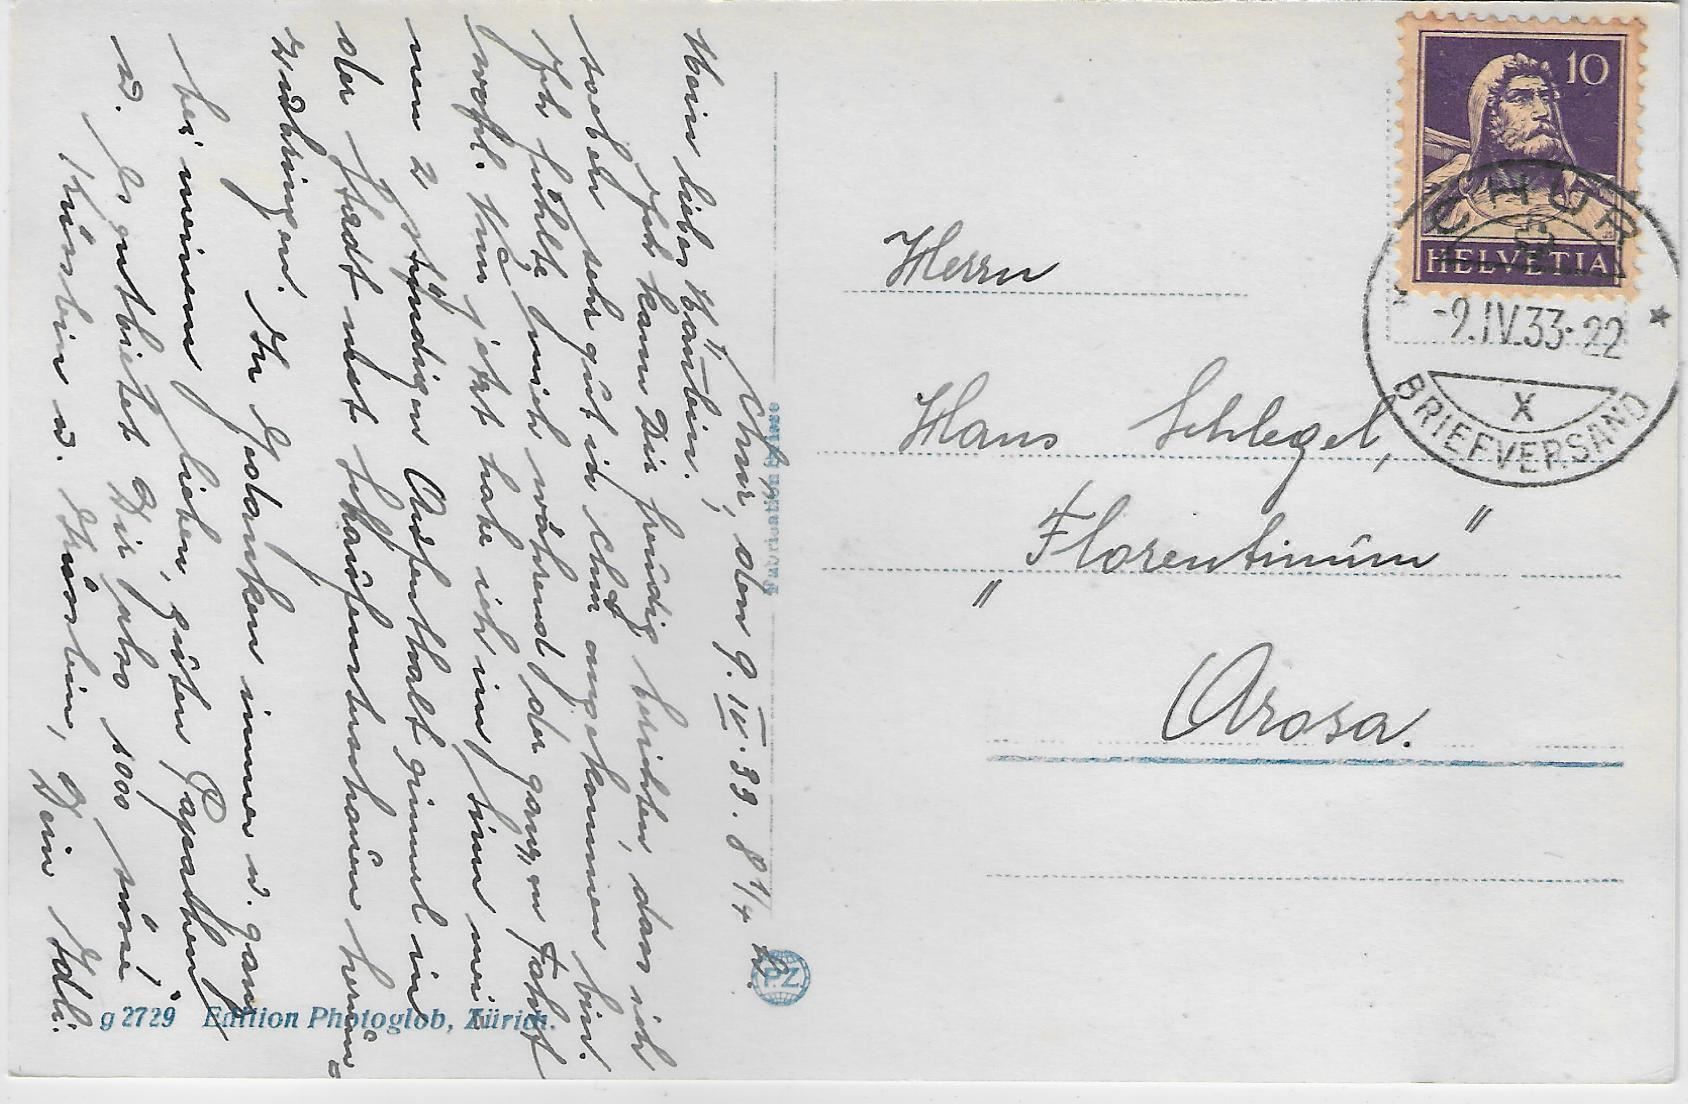 Chur, den 9. IV. 33. 8 1/4 U.
Mein liebes Hänslein!
Ich kann Dir freudig berichten, dass ich
soeben sehr gut in Chur angekommen bin.
Ich fühlte mich während der ganzen Fahrt
wohl. Nun jetzt habe ich im Sinn mei-
nen 2 stündigen Aufenthalt einmal in
der Stadt mit herum-
zubringen.
In Gedanken immer u. ganz
bei meinem lieben, guten Papachen!
u. Es entbietet Dir 1000 süsse
Küsslein u. Grüsslein, Dein Idali.
Fabrication Suisse
P.Z.
g 2729 Edition Photoglob, Zürich.
10
HELVETIA
CHUR
-9.IV.33·22
X
BRIEFVERSAND
Herrn
Hans Schlegel,
„Florentinum"
Arosa.